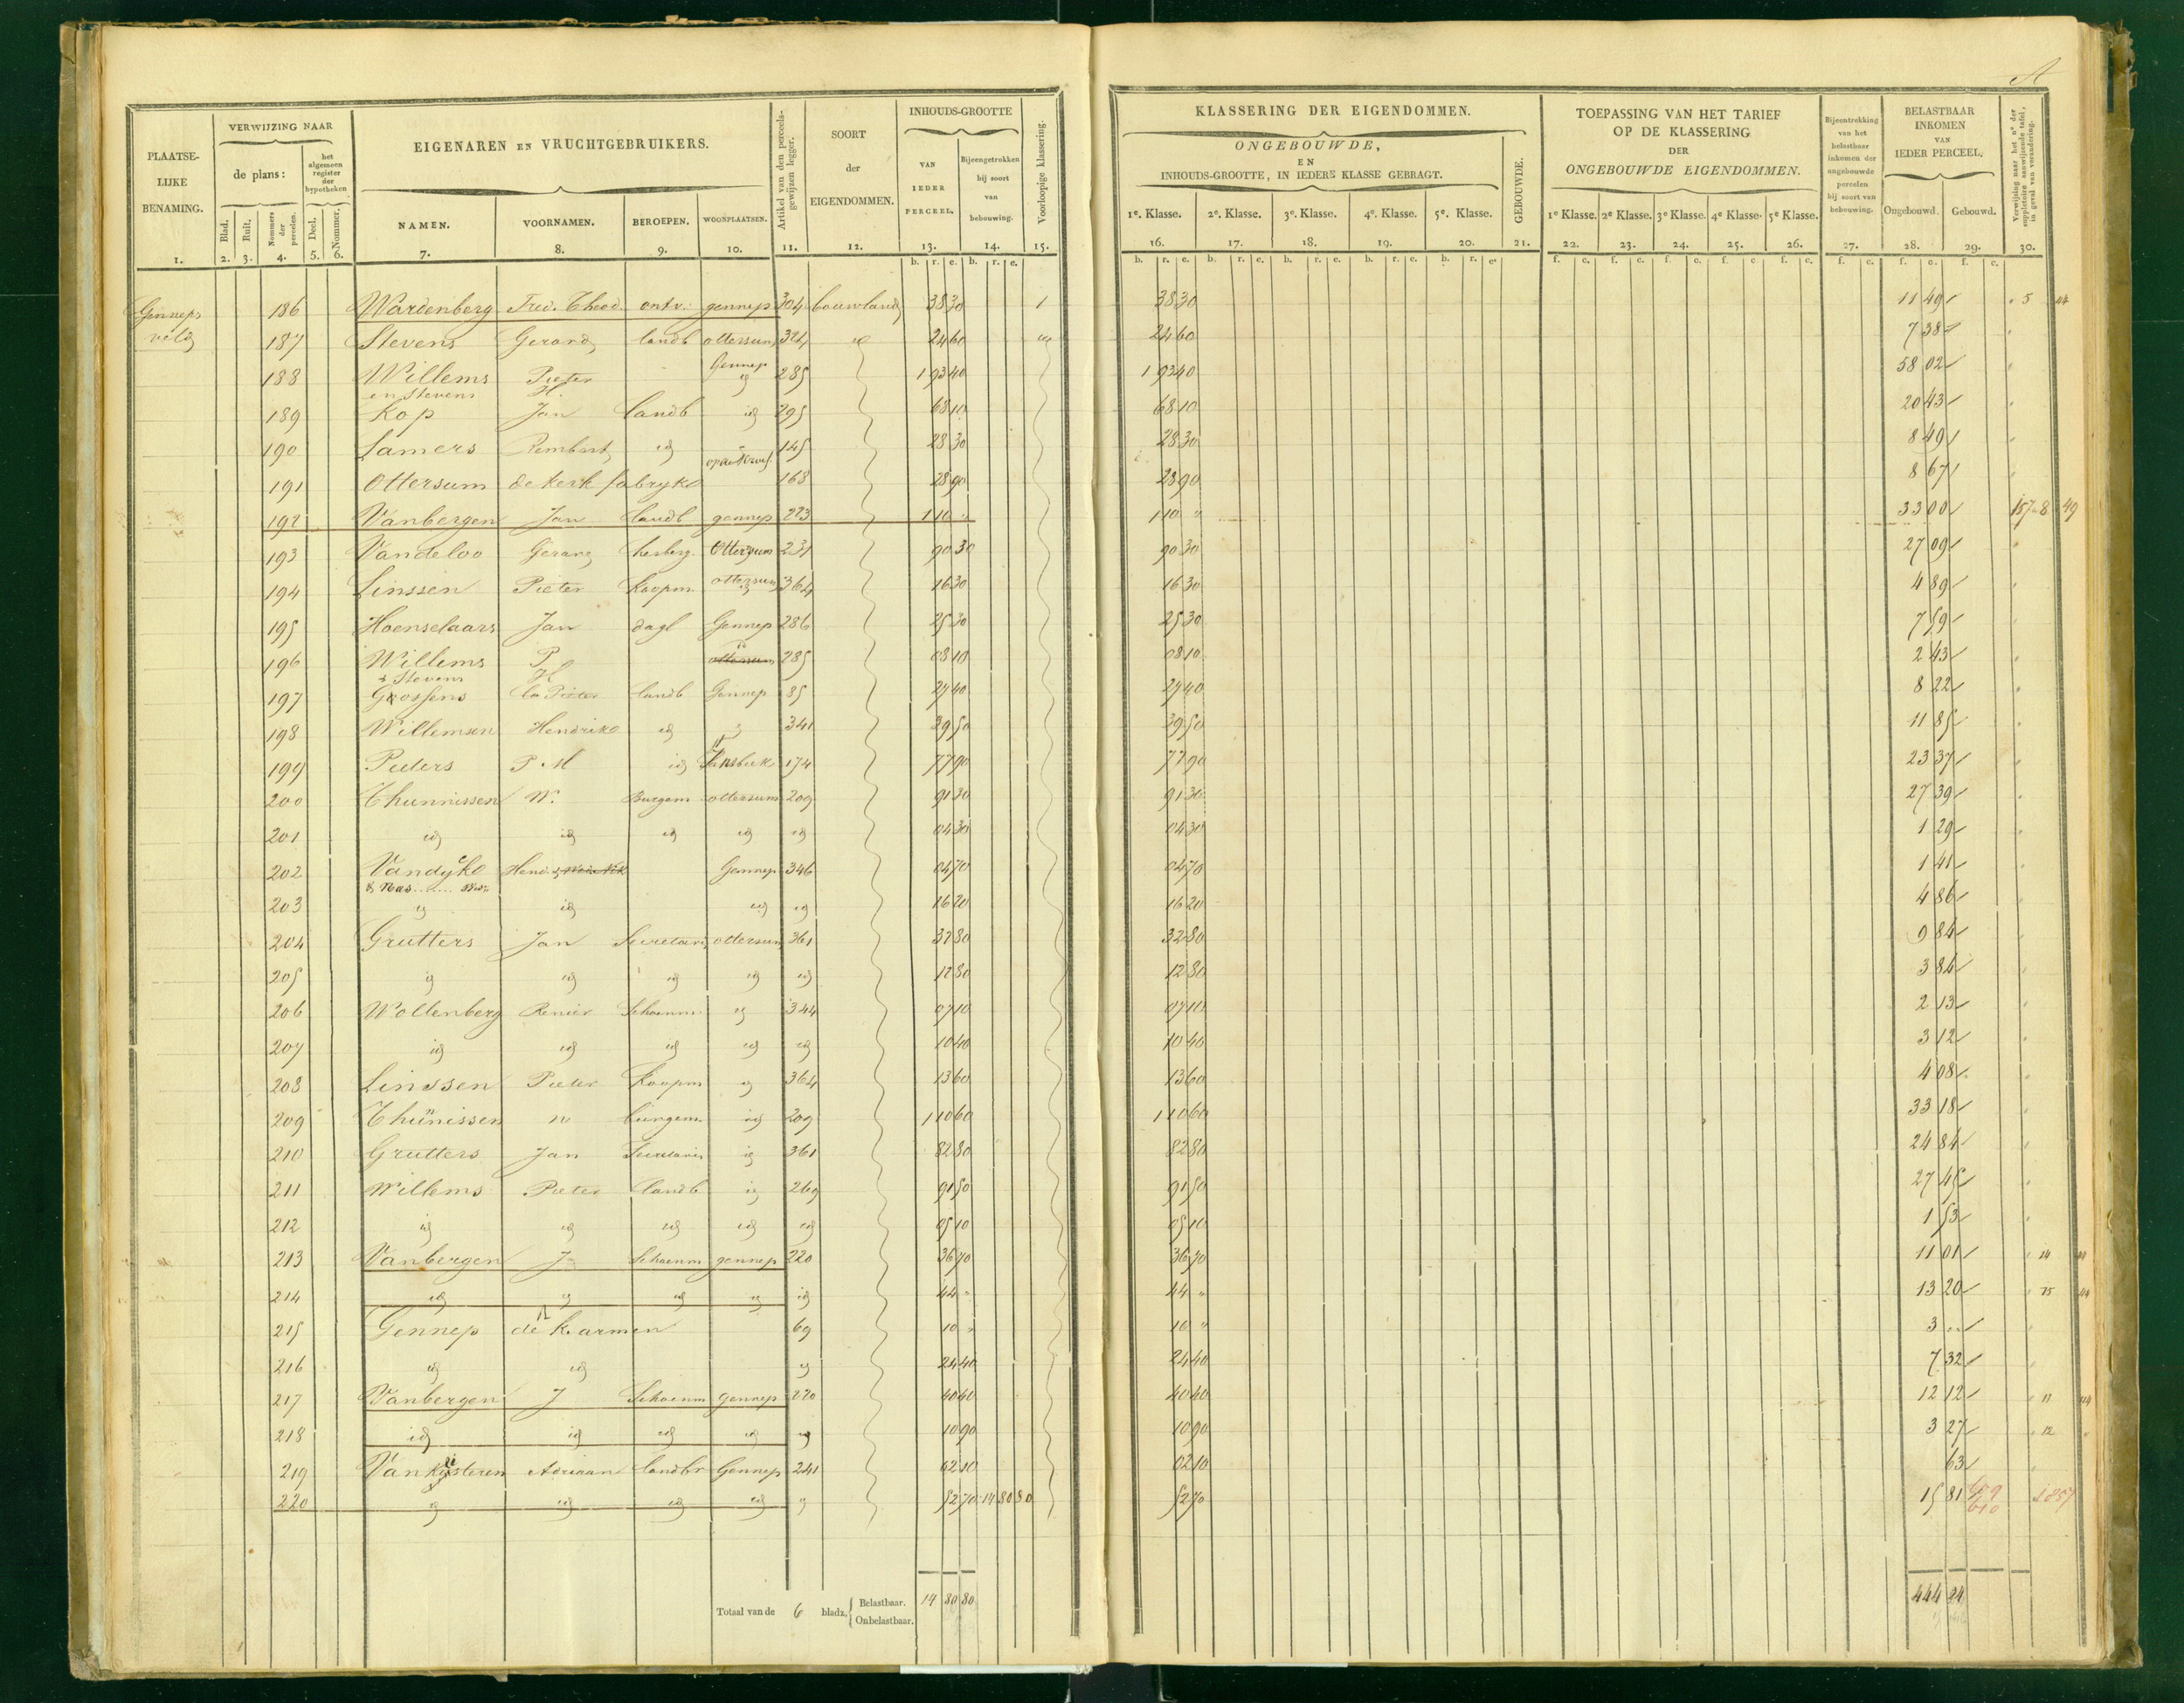 A
PLAATSELIJKE BENAMING. 1.
VERWIJZING NAAR
de plans:
het algemeen register der hypotheken
Blad. 2. Ruit. 3. Nommers der perceelen. 4. Deel. 5. Nommer. 6.
EIGENAREN EN VRUCHTGEBRUIKERS.
NAMEN. 7. VOORNAMEN. 8. BEROEPEN. 9. WOONPLAATSEN. 10.
Artikel van den perceelsgewijzen legger. 11.
SOORT der EIGENDOMMEN. 12.
INHOUDS-GROOTTE
VAN IEDER PERCEEL. 13. b. r. e.
Bijeengetrokken bij soort van bebouwing. 14. b. r. e.
Voorloopige klassering. 15.
KLASSERING DER EIGENDOMMEN.
ONGEBOUWDE,
EN
INHOUDS-GROOTTE, IN IEDERE KLASSE GEBRAGT.
1e. Klasse. 2e. Klasse. 3e. Klasse. 4e. Klasse. 5e. Klasse.
16. 17. 18. 19. 20.
GEBOUWDE. 21.
TOEPASSING VAN HET TARIEF
OP DE KLASSERING
DER
ONGEBOUWDE EIGENDOMMEN.
1e Klasse. 2e Klasse. 3e Klasse. 4e Klasse. 5e Klasse.
22. 23. 24. 25. 26.
Bijeentrekking van het belastbaar inkomen der ongebouwde perceelen bij soort van bebouwing. 27.
BELASTBAAR INKOMEN VAN IEDER PERCEEL.
Ongebouwd. 28. Gebouwd. 29.
Verwijzing naar het no der suppletoire aanwijzende tafel, in geval van verandering. 30.
Genneps 186 Wardenberg Fred. Theod. ontv. gennep 304 bouwland 38 30 1 38 30 11 49 5 44
veld 187 Stevens Gerard landb ottersum 324 id 24 60 24 60 7 38
188 Willems Pieter Gennep id 285 1 93 40 1 93 40 58 02
en Stevens H.
189 Kop Jan landb id 295 68 10 68 10 20 43
190 Lamers Rembert id 145 28 30 28 30 8 49
191 Ottersum de kerk fabryke 168 28 90 28 90 8 67
192 Vanbergen Jan landb gennep 223 1 10 " 1 10 " 33 00 157 8 49
193 Vandeloo Gerard herberg. Ottersum 231 90 30 90 30 27 09
194 Linssen Pieter Koopm. ottersum id 364 16 30 16 30 4 89
195 Hoenselaars Jan dagl Gennep 286 25 30 25 30 7 59
196 Willems P id ottersum 285 08 10 08 10 2 43
& Stevens H
197 Gossens Pieter landb Gennep 85 27 40 27 40 8 22
198 Willemsen Hendrike id 341 39 50 39 50 11 85
199 Peeters P M id 174 77 90 77 90 23 37
200 Thunnissen W. Burgem ottersum 209 91 30 91 30 27 39
201 id id id id id 04 30 04 30 1 29
202 Vandyke Hend. Gennep 346 04 70 04 70 1 41
203 id id id id 16 20 16 20 4 86
204 Grutters Jan Secretaris ottersum 361 32 80 32 80 9 84
205 id id id id id 12 80 12 80 3 84
206 Wollenberg Renier Schoenm. id 344 07 10 07 10 2 13
207 id id id id id 10 40 10 40 3 12
208 Linssen Pieter Koopm id 364 13 60 13 60 4 08
209 Thunnissen W burgem id 209 1 10 60 1 10 60 33 18
210 Grutters Jan Secretaris id 361 82 80 82 80 24 84
211 Willems Pieter landb id 269 91 50 91 50 27 45
212 id id id id id 05 10 05 10 1 53
213 Vanbergen J Schoenm gennep 220 36 70 36 70 11 01 14 44
214 id id id id id 44 " 44 " 13 20 15 44
215 Gennep de R. K. armen 69 10 " 10 " 3 "
216 id id id 24 40 24 40 7 32
217 Vanbergen J Schoenm Gennep 220 40 40 40 40 12 12 11 44
218 id id id id id 10 90 10 90 3 27 12 "
219 Adriaan landbr Gennep 241 02 10 02 10 63
220 id id id id id 52 70 14 80 80 52 70 15 81 609 610 1857
Totaal van de 6 bladz. Belastbaar. 14 80 80 444 24
Onbelastbaar.